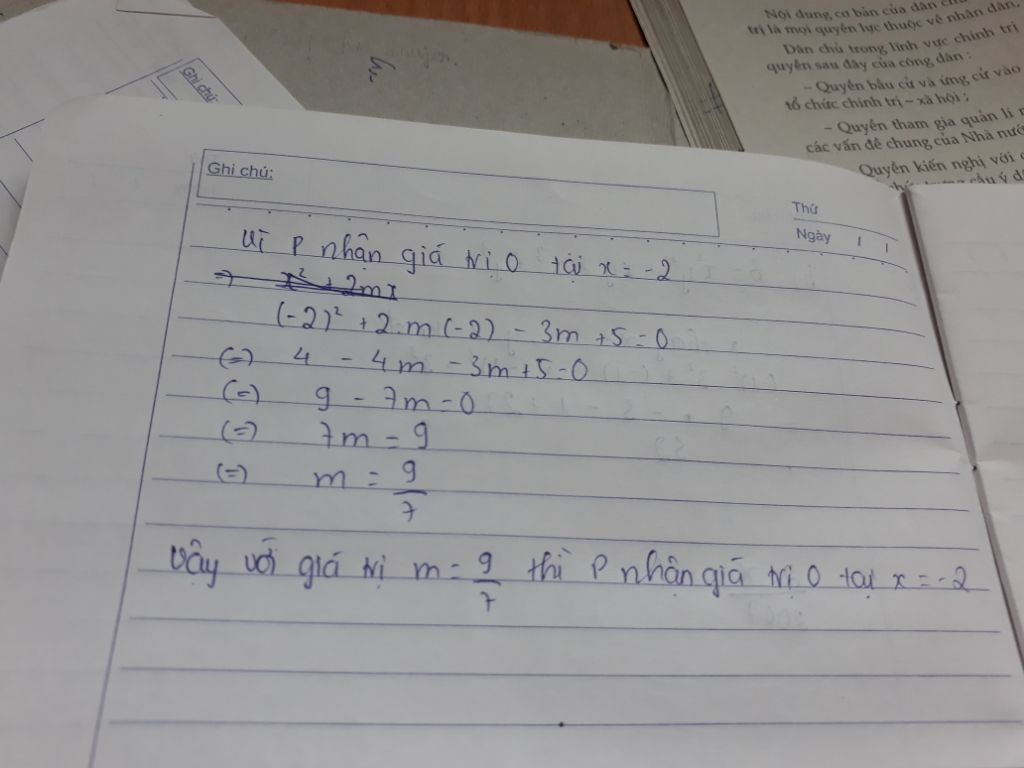 Nội dung cơ bản của dân chủ
trị là mọi quyền lực thuộc về nhân dân,
Dân chủ trong lĩnh vực chính trị
quyền sau đây của công dân :
– Quyền bầu cử và ứng cử vào
tổ chức chính trị – xã hội ;
– Quyền tham gia quản lí
các vấn đề chung của Nhà nước
Quyền kiến nghị với
Ghi chú:
Ghi chú:
Thứ
Ngày / /
Vì P nhận giá trị 0 tại x = -2
=> x² + 2mx
(-2)² + 2.m(-2) - 3m + 5 = 0
(=) 4 - 4m - 3m + 5 = 0
(=) 9 - 7m = 0
(=) 7m = 9
(=) m = 9/7
Vậy với giá trị m = 9/7 thì P nhận giá trị 0 tại x = -2